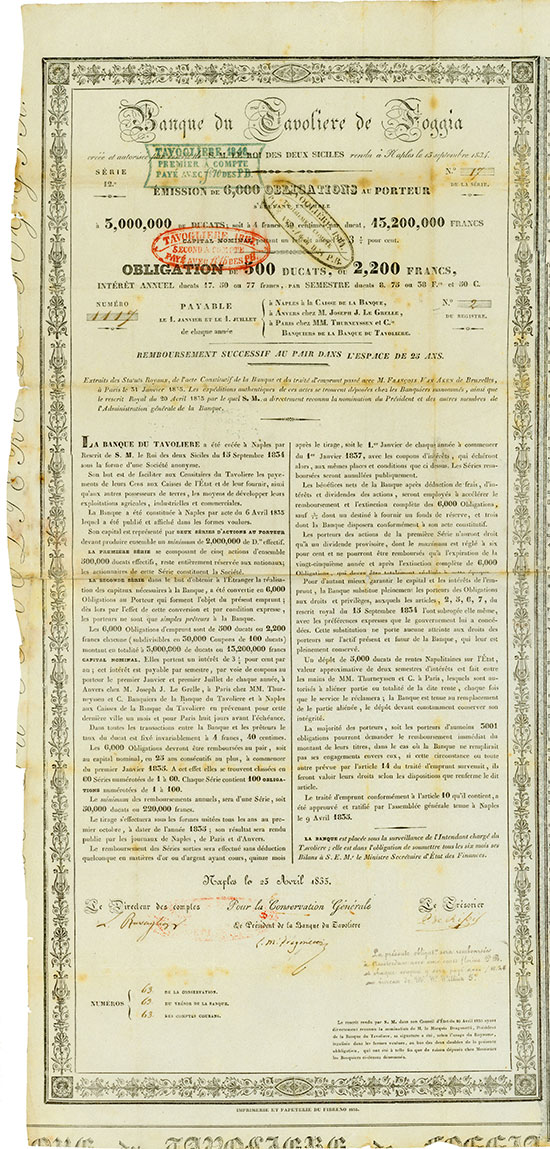 Banque du Tavoliere de Foggia
créée et autorisée ROI DES DEUX SICILES rendu à Naples le 13 septembre 1834.
TAVOGLIERE 1846
PREMIER À COMPTE
PAYÉ AVEC DES P.R.
SÉRIE
12.e
N.º 17
DE LA SÉRIE.
ÉMISSION DE 6,000 OBLIGATIONS AU PORTEUR
à 3,000,000 DE DUCATS; soit à 4 francs 40 centimes ducat, 13,200,000 FRANCS
CAPITAL NOMINAL, portant un intérêt annuel 3 ½ pour cent.
TAVOGLIERE
SECOND À COMPTE
PAYÉ AVEC DES P.R.
OBLIGATION DE 500 DUCATS, OU 2,200 FRANCS,
INTÉRÊT ANNUEL DUCATS 17. 50 OU 77 FRANCS, PAR SEMESTRE DUCATS 8. 75 OU 38 F.cs ET 50 C.
NUMÉRO
1117
PAYABLE
LE 1. JANVIER ET LE 1. JUILLET
de chaque année
à NAPLES à LA CAISSE DE LA BANQUE,
à ANVERS chez M. JOSEPH J. LE GRELLE,
à PARIS chez MM. THURNEYSSEN ET C.ie
BANQUIERS DE LA BANQUE DU TAVOLIERE.
N.º 2
DE REGISTRE.
REMBOURSEMENT SUCCESSIF AU PAIR DANS L'ESPACE DE 25 ANS.
Extraits des Statuts Royaux, de l'acte Constitutif de la Banque et du traité d'emprunt passé avec M. FRANÇOIS VAN AKEN de Bruxelles,
à Paris le 31 Janvier 1835. Les expéditions authentiques de ces actes se trouvent déposées chez les Banquiers susnommés, ainsi que
le rescrit Royal du 29 Avril 1835 par le quel S. M. a directement reconnu la nomination du Président et des autres membres de
l'Administration générale de la Banque.
LA BANQUE DU TAVOLIERE a été créée à Naples par
Rescrit de S. M. le Roi des deux Siciles du 13 Septembre 1834
sous la forme d'une Société anonyme.
Son but est de faciliter aux Censitaires du Tavoliere les paye-
ments de leurs Cens aux Caisses de l'État et de leur fournir, ainsi
qu'aux autres possesseurs de terres, les moyens de développer leurs
exploitations agricoles, industrielles et commerciales.
La Banque a été constituée à Naples par acte du 6 Avril 1835
lequel a été publié et affiché dans les formes voulues.
Son capital est représenté par DEUX SÉRIES D'ACTIONS AU PORTEUR
devant produire ensemble un minimum de 2,000,000 de D.s effectif.
LA PREMIÈRE SÉRIE se compose de cinq actions d'ensemble
500,000 ducats effectifs, reste entièrement réservée aux nationaux;
les actionnaires de cette Série constituent la Société.
LA SECONDE SÉRIE dans le but d'obtenir à l'Étranger la réalisa-
tion des capitaux nécessaires à la Banque, a été convertie en 6,000
Obligations au Porteur qui forment l'objet du présent emprunt;
dès lors par l'effet de cette conversion et par condition expresse,
les porteurs ne sont que simples prêteurs à la Banque.
Les 6,000 Obligations d'emprunt sont de 500 ducats ou 2,200
francs chacune (subdivisibles en 30,000 Coupons de 100 ducats)
montant en totalité à 3,000,000 de ducats ou 13,200,000 francs
CAPITAL NOMINAL. Elles portent un intérêt de 3 ½ pour cent par
an; cet intérêt est payable par semestre, par voie de coupons au
porteur le premier Janvier et premier Juillet de chaque année, à
Anvers chez M. Joseph J. Le Grelle, à Paris chez MM. Thur-
neyssen et C. Banquiers de la Banque du Tavoliere et à Naples
aux Caisses de la Banque du Tavoliere en prévenant pour cette
dernière ville un mois et pour Paris huit jours avant l'échéance.
Dans toutes les transactions entre la Banque et les prêteurs le
taux du ducat est fixé invariablement à 4 francs, 40 centimes.
Les 6,000 Obligations devront être remboursées au pair, soit
au capital nominal, en 25 ans consécutifs au plus, à commencer
du premier Janvier 1835. A cet effet elles se trouvent classées en
60 Séries numérotées de 1 à 60. Chaque Série contient 100 OBLIGA-
TIONS numérotées de 1 à 100.
Le minimum des remboursements annuels, sera d'une Série, soit
50,000 ducats ou 220,000 francs.
Le tirage s'effectuera sous les formes usitées tous les ans au pre-
mier octobre, à dater de l'année 1835; son résultat sera rendu
public par les journaux de Naples, de Paris et d'Anvers.
Le remboursement des Séries sorties sera effectué sans déduction
quelconque en matières d'or ou d'argent ayant cours, quinze mois
après le tirage, soit le 1.er Janvier de chaque année à commencer
du 1.er Janvier 1837, avec les coupons d'intérêts, qui échéront
alors, aux mêmes places et conditions que ci dessus. Les Séries rem-
boursées seront annullées publiquement.
Les bénéfices nets de la Banque après déduction de frais, d'in-
térêts et dividendes des actions, seront employés à accélérer le
remboursement et l'extinction complète des 6,000 Obligations,
sauf un dont est destiné à fournir un fonds de réserve, et trois
dont la Banque disposera conformément à son acte constitutif.
Les porteurs des actions de la première Série n'auront droit
qu'à un dividende provisoire, dont le maximum est réglé à six
pour cent et ne pourront être remboursés qu'à l'expiration de la
vingt-cinquième année et après l'extinction complète de 6,000
Pour d'autant mieux garantir le capital et les intérêts de l'em-
prunt, la Banque substitue pleinement les porteurs des Obligations
aux droits et privilèges, auxquels les articles, 2, 3, 6, 7, du
rescrit royal du 13 Septembre 1834 l'ont subrogée elle même,
avec les préférences expresses que le gouvernement lui a concé-
dées. Cette substitution ne porte aucune atteinte aux droits des
porteurs sur l'actif présent et futur de la Banque, qui leur est
pleinement conservé.
Un dépôt de 3,000 ducats de rentes Napolitaines sur l'État,
valeur approximative de deux semestres d'intérêts est fait entre
les mains de MM. Thurneyssen et C. à Paris, lesquels sont auto-
risés à aliéner partie ou totalité de la dite rente, chaque fois
que le service le réclamera; la Banque est tenue au remplacement
de la partie aliénée, le dépôt devant constamment conserver son
intégrité.
La majorité des porteurs, soit les porteurs d'aumoins 3001
obligations pourront demander le remboursement immédiat du
montant de leurs titres, dans le cas où la Banque ne remplirait
pas ses engagements envers eux, si cette circonstance ou toute
autre prévue par l'article 14 du traité d'emprunt survenait, ils
feront valoir leurs droits selon les disposition que renferme le dit
article.
Le traité d'emprunt conformément à l'article 40 qu'il contient, a
été approuvé et ratifié par l'assemblée générale tenue à Naples
le 9 Avril 1835.
LA BANQUE est placée sous la surveillance de l'Intendant chargé du
Tavoliere; elle est dans l'obligation de soumettre tous les six mois ses
Bilans à S. E. M.r le Ministre Secrétaire d'État des Finances.
Naples le 25 Avril 1835.
Le Directeur des comptes
Pour la Conservation Générale
Le Trésorier
Le Président de la Banque du Tavoliere
NUMÉROS
63. DE LA CONSERVATION.
63. DU TRÉSOR DE LA BANQUE.
63. DES COMPTES COURANS.
La présente obligat. sera remboursée
Le rescrit rendu par S. M. dans son Conseil d'État du 29 Avril 1835 ayant
directement reconnu la nomination de M. le Marquis Dragonetti, Président
de la Banque du Tavoliere, sa signature a été, selon l'usage du Royaume,
IMPRIMERIE ET PAPETERIE DU FIBRENO 1835.
QUE du TAVOLIERE de FOGGIA